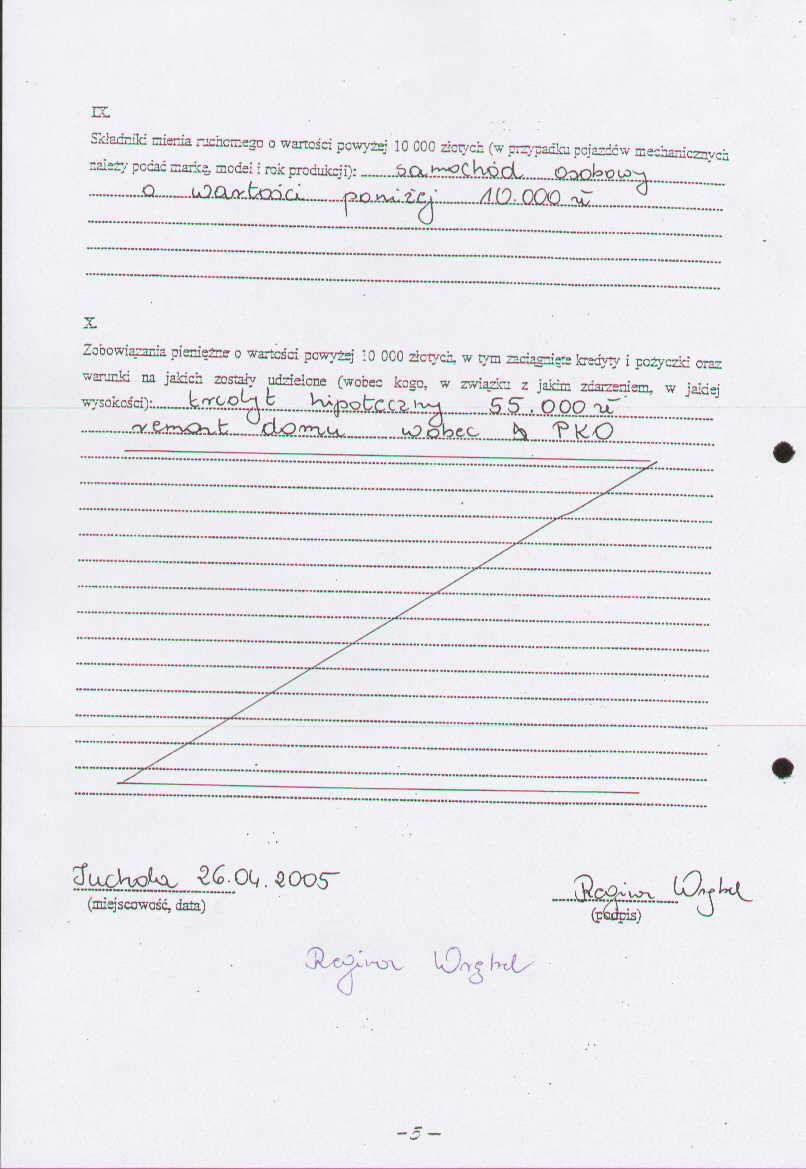 IX.
Składniki mienia ruchomego o wartości powyżej 10 000 złotych (w przypadku pojazdów mechanicznych
należy podać markę, model i rok produkcji): samochód osobowy
o wartości poniżej 10.000 zł
X.
Zobowiązania pieniężne o wartości powyżej 10 000 złotych, w tym zaciągnięte kredyty i pożyczki oraz
warunki na jakich zostały udzielone (wobec kogo, w związku z jakim zdarzeniem, w jakiej
wysokości): kredyt hipoteczny 55.000 zł
remont domu wobec PKO
Tuchola 26.04.2005
(miejscowość, data)
Regina
(podpis)
Regina
- 5 -